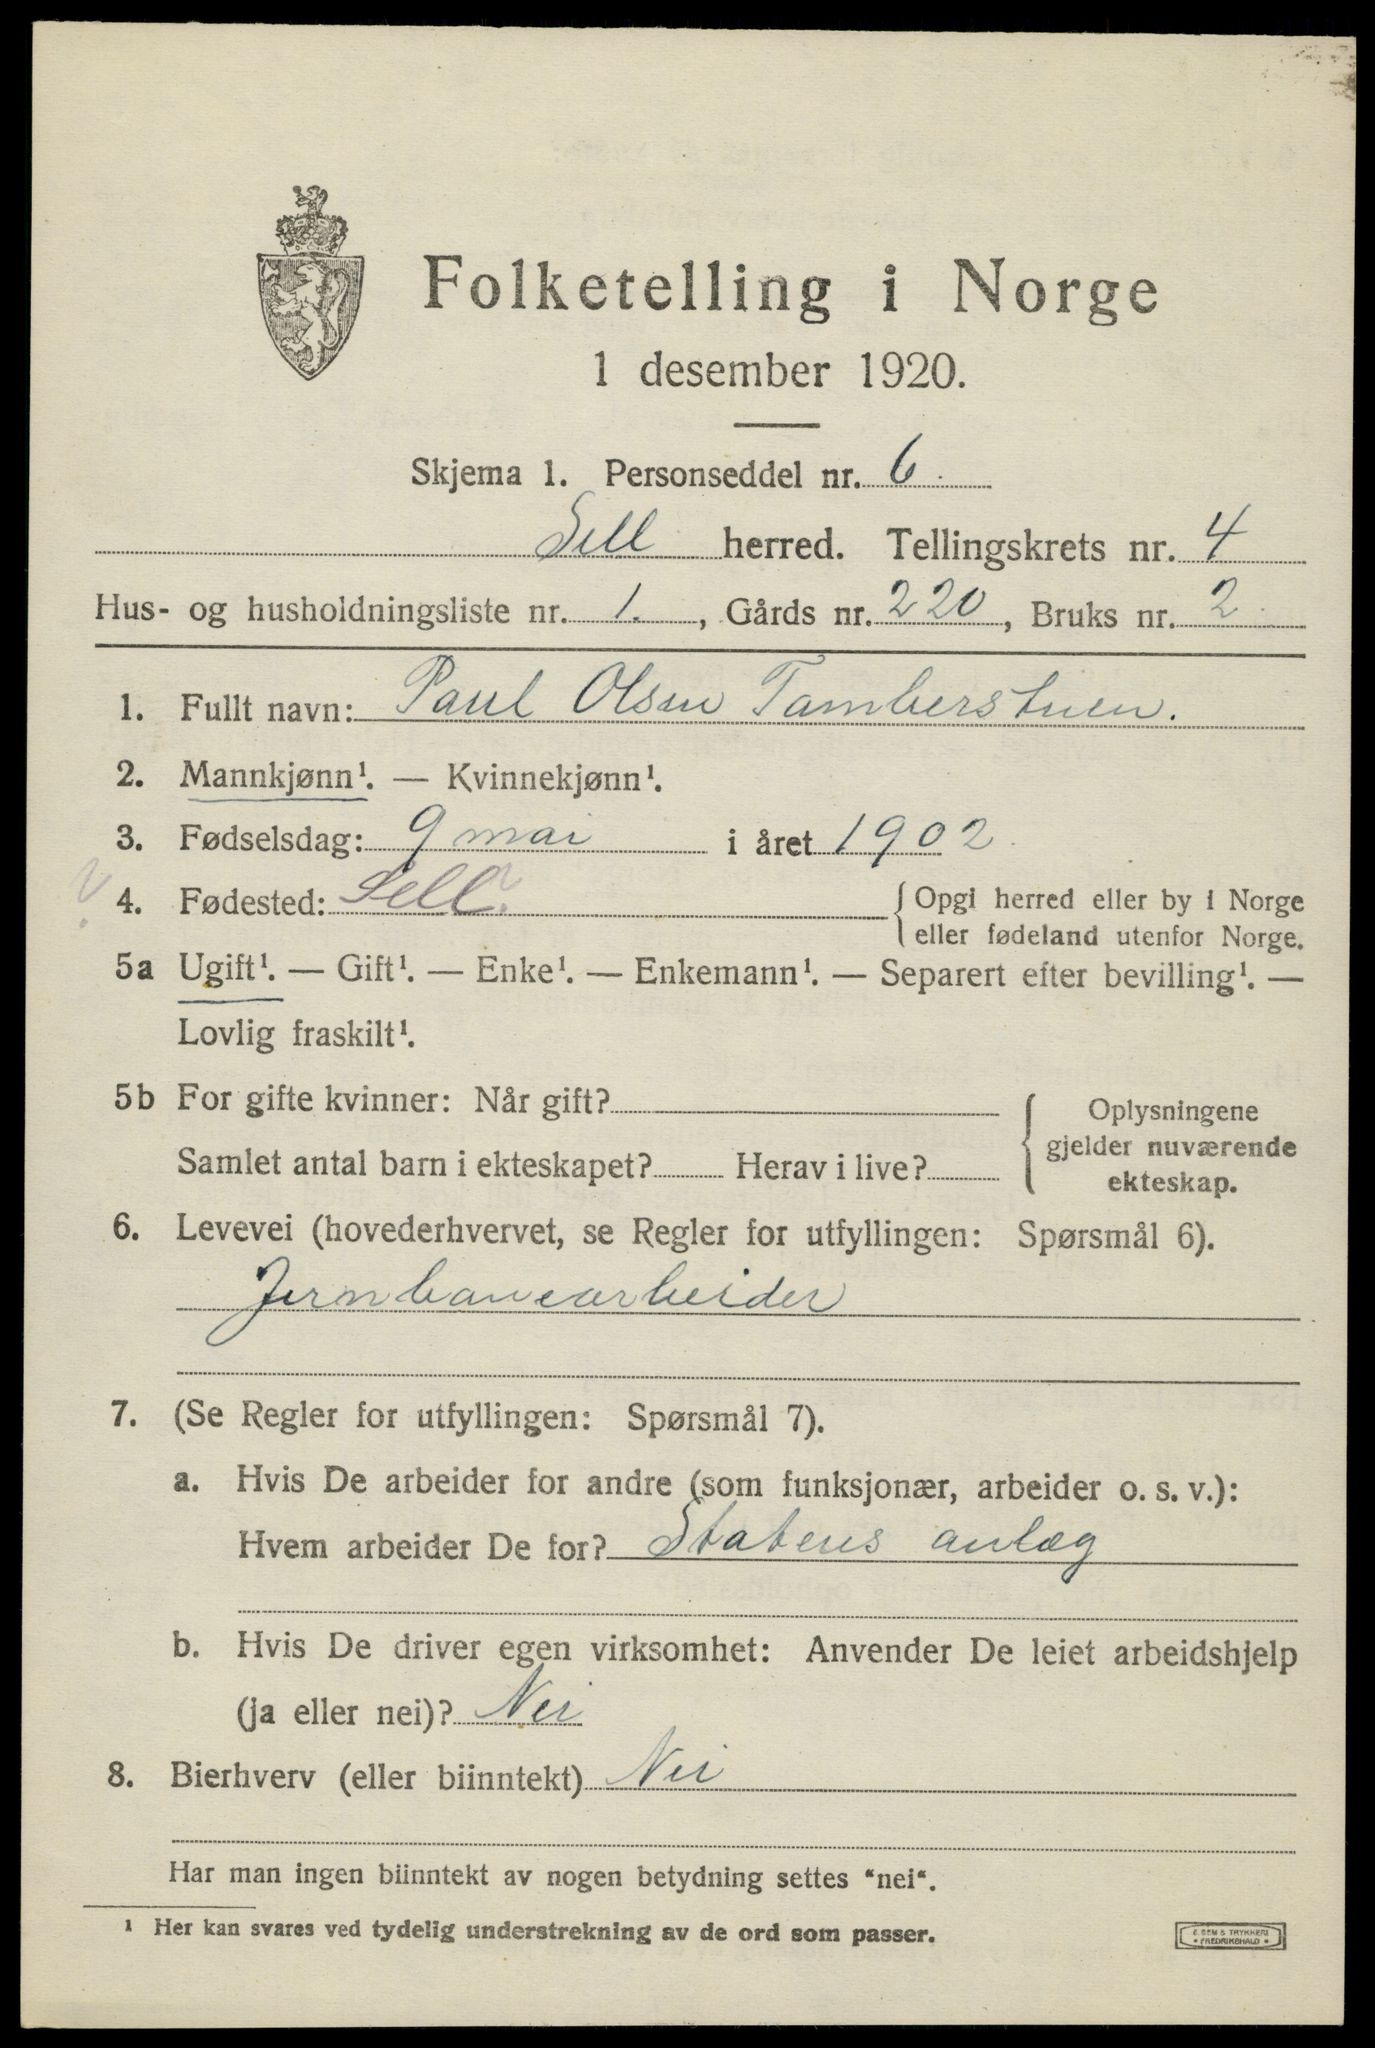 Folketelling i Norge
1 desember 1920.
Skjema 1. Personseddel nr. 6.
Sell herred. Tellingskrets nr. 4
Hus- og husholdningsliste nr. 1., Gårds nr. 220, Bruks nr. 2
1. Fullt navn: Paul Olsen Tamberstuen.
2. Mannkjønn¹. — Kvinnekjønn¹.
3. Fødselsdag: 9 mai i året 1902
? 4. Fødested: Sell ? { Opgi herred eller by i Norge
eller fødeland utenfor Norge.
5a Ugift¹. — Gift¹. — Enke¹. — Enkemann¹. — Separert efter bevilling¹. —
Lovlig fraskilt¹.
5b For gifte kvinner: Når gift? { Oplysningene
gjelder nuværende
Samlet antal barn i ekteskapet? Herav i live?
ekteskap.
6. Levevei (hovederhvervet, se Regler for utfyllingen: Spørsmål 6).
Jernbanearbeider
7. (Se Regler for utfyllingen: Spørsmål 7).
a. Hvis De arbeider for andre (som funksjonær, arbeider o. s. v.):
Hvem arbeider De for? Statens anlæg
b. Hvis De driver egen virksomhet: Anvender De leiet arbeidshjelp
(ja eller nei)? Nei
8. Bierhverv (eller biinntekt) Nei
Har man ingen biinntekt av nogen betydning settes “nei“.
¹ Her kan svares ved tydelig understrekning av de ord som passer.
E. SEM'S TRYKKERI
• FREDRIKSHALD •